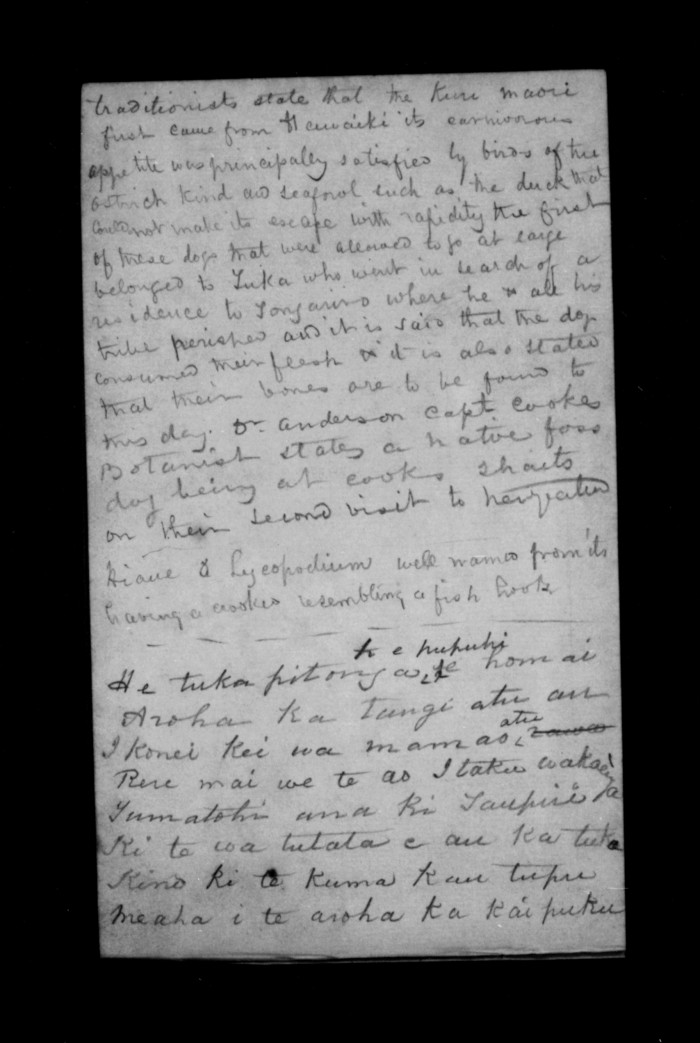 traditionists state that the Kuri maori
first came from Hawaiki its carnivorous
appetite was principally satisfied by birds of the
ostrich kind and seafowl such as the duck that
could not make its escape with rapidity the first
of these dogs that were allowed to go at large
belonged to Tuka who went in search of a
residence to Tongariro where he & all his
tribe perished and it is said that the dogs
consumed their flesh & it is also stated
that their bones are to be found to
this day. Dr. anderson Capt Cookes
Botanist states a native
dog being at cooks straits
on their second visit to
a Lycopodium well named from its
having a crooke resembling a fish hook
He tuka pitonga te pupuhi te hom ai
Aroha ka tangi atu au
I konei kei wa mamao atu
Rere mai we te ao I taku
Tumatohi ana ki Taupiri
Ki te wa tutata e au ka tuka
Kino ki te kuma kau tupu
meaha i te aroha ka kai puku